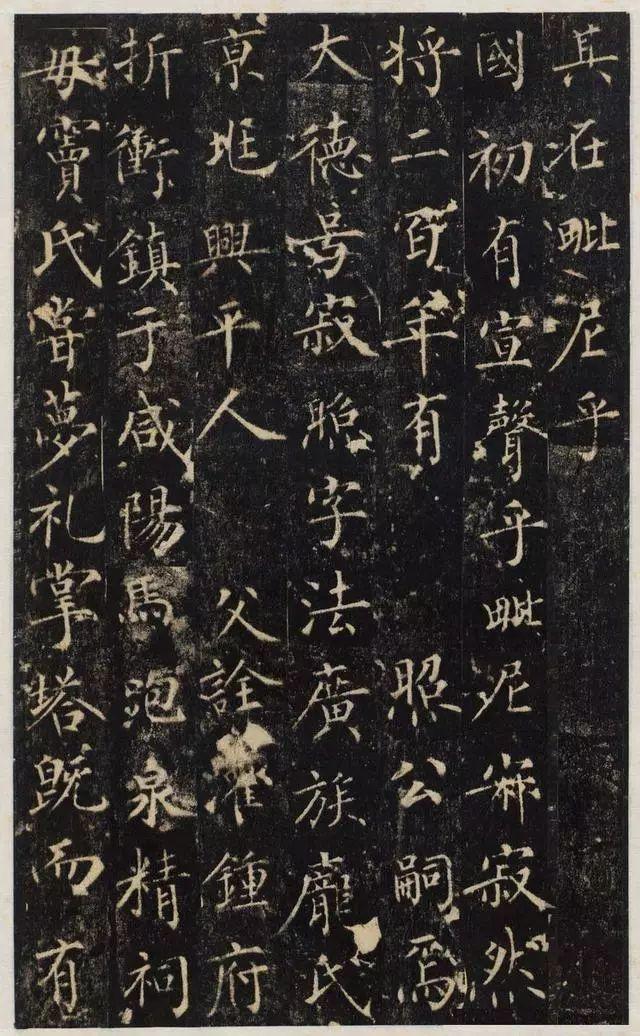 其在毗尼乎
國初有宣聲乎毗尼寂然
將二百年有照公嗣焉
大德号寂照字法廣族龐氏
京兆興平人父詮灌鍾府
折衝鎮于咸陽馬跑泉精祠
毋竇氏嘗夢礼掌塔既而有